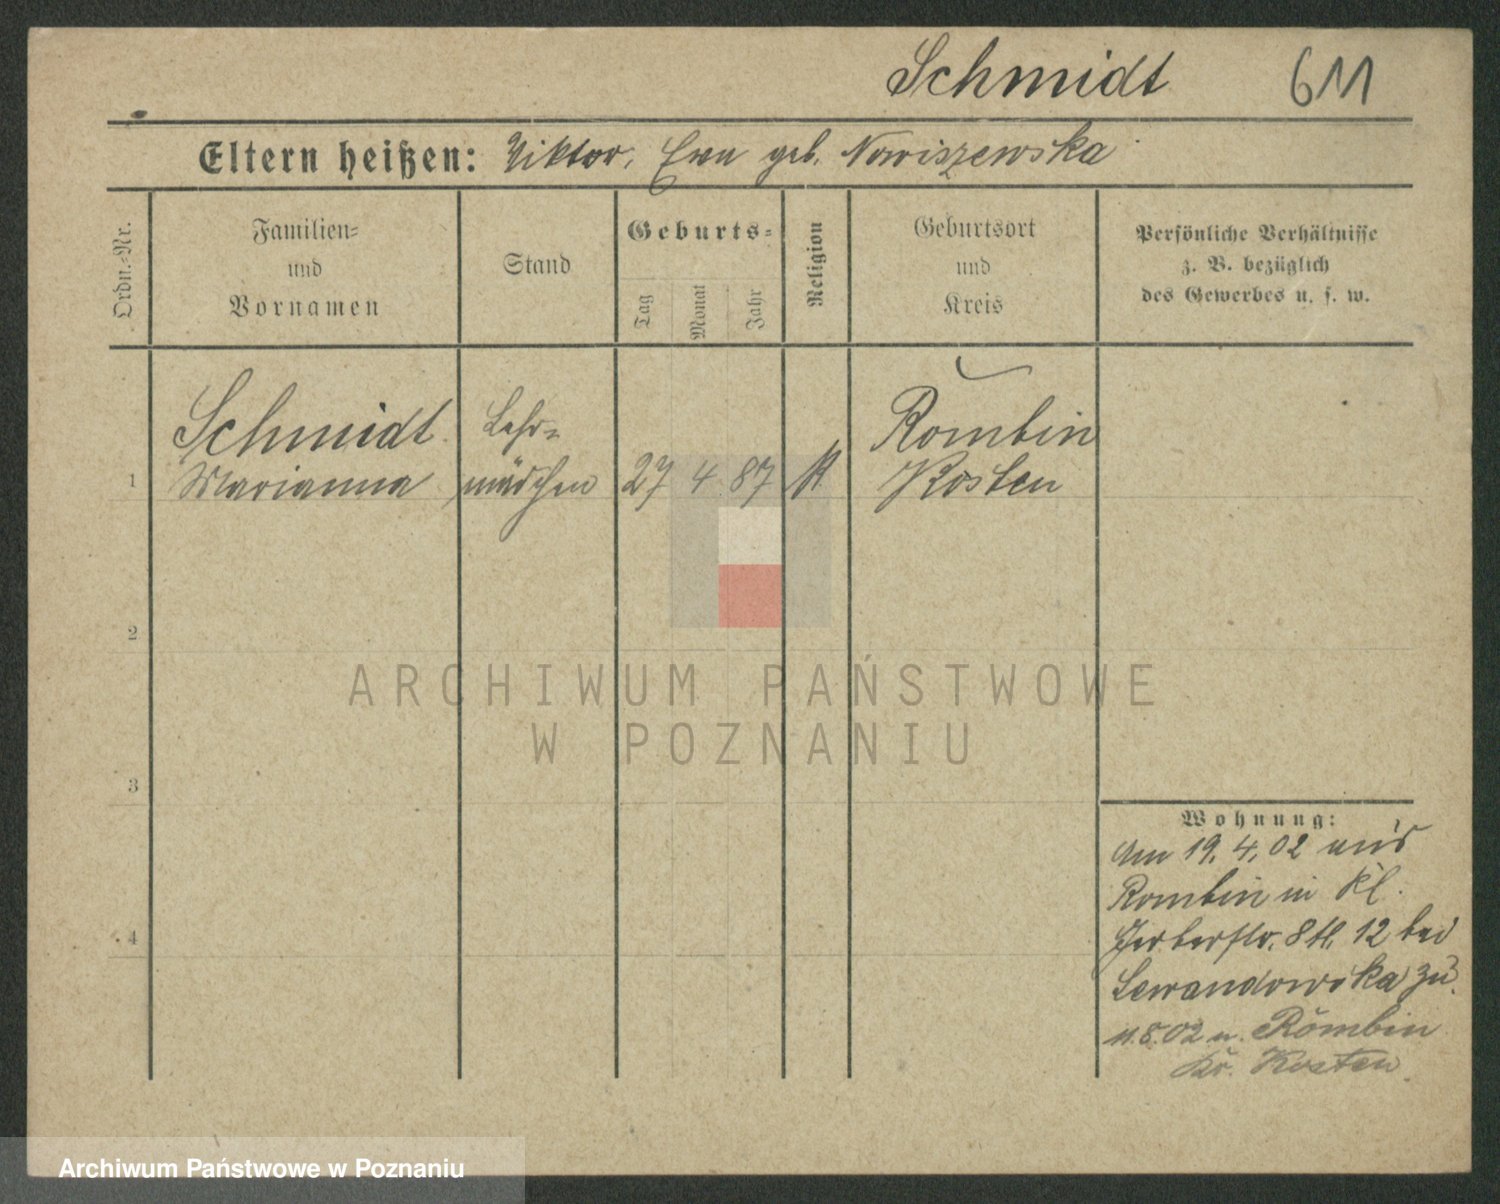 Schmidt 611
Eltern heißen: Viktor, Ewa geb. Nowiszewska
Ordn.-Nr.
Familien- und Vornamen
Stand
Geburts-
Tag
Monat
Jahr
Religion
Geburtsort und Kreis
Persönliche Verhältnisse
z. B. bezüglich
des Gewerbes u. s. w.
1
Schmidt
Marianna
Lehr-
mädchen
27 4 87 K
Rombin
Kosten
2
3
4
Wohnung:
Am 19.4.02 aus
Rombin in Kl.
Gerberstr. 8 II. 12 bei
Lewandowska zu.
11.8.02 n. Rombin
Kr. Kosten
ARCHIWUM PAŃSTWOWE
W POZNANIU
Archiwum Państwowe w Poznaniu